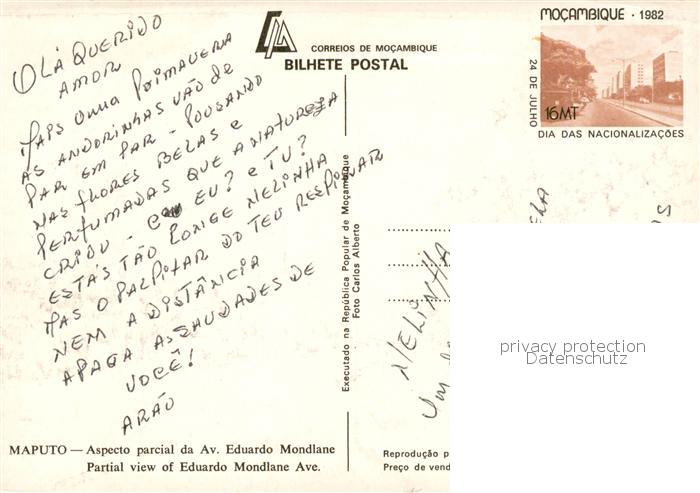 OLÁ QUERIDO
AMOR
MAPS OUMA PRIMAVERA
AS ANDORINHAS VÃO DE
PAR EM PAR - POUSANDO
NAS FLORES BELAS E
PERFUMADAS QUE A NATUREZA
CRIOU - EU? E TU?
ESTÁS TÃO LONGE NELINHA
MAS O PALPITAR DO TEU RESPIRAR
NEM A DISTÂNCIA
APAGA AS SAUDADES DE
VOCÊ!
ARÃO
CORREIOS DE MOÇAMBIQUE
BILHETE POSTAL
MOÇAMBIQUE · 1982
24 DE JULHO
16MT
DIA DAS NACIONALIZAÇÕES
Executado na República Popular de Moçambique
Foto Carlos Alberto
NELINHA
Um
privacy protection
Datenschutz
MAPUTO — Aspecto parcial da Av. Eduardo Mondlane
Partial view of Eduardo Mondlane Ave.
Reprodução p
Preço de vend